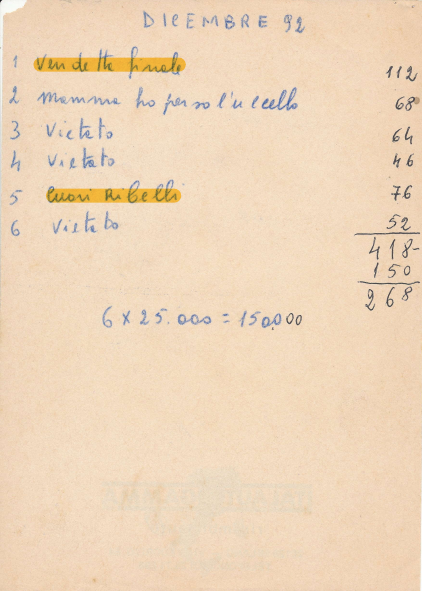 DICEMBRE 92
1 Vendetta finale 112
2 Mamma ho perso l'uccello 68
3 Vietato 64
4 Vietato 46
5 Cuori Ribelli 76
6 Vietato 52
418-
150
268
6 x 25.000 = 150.000